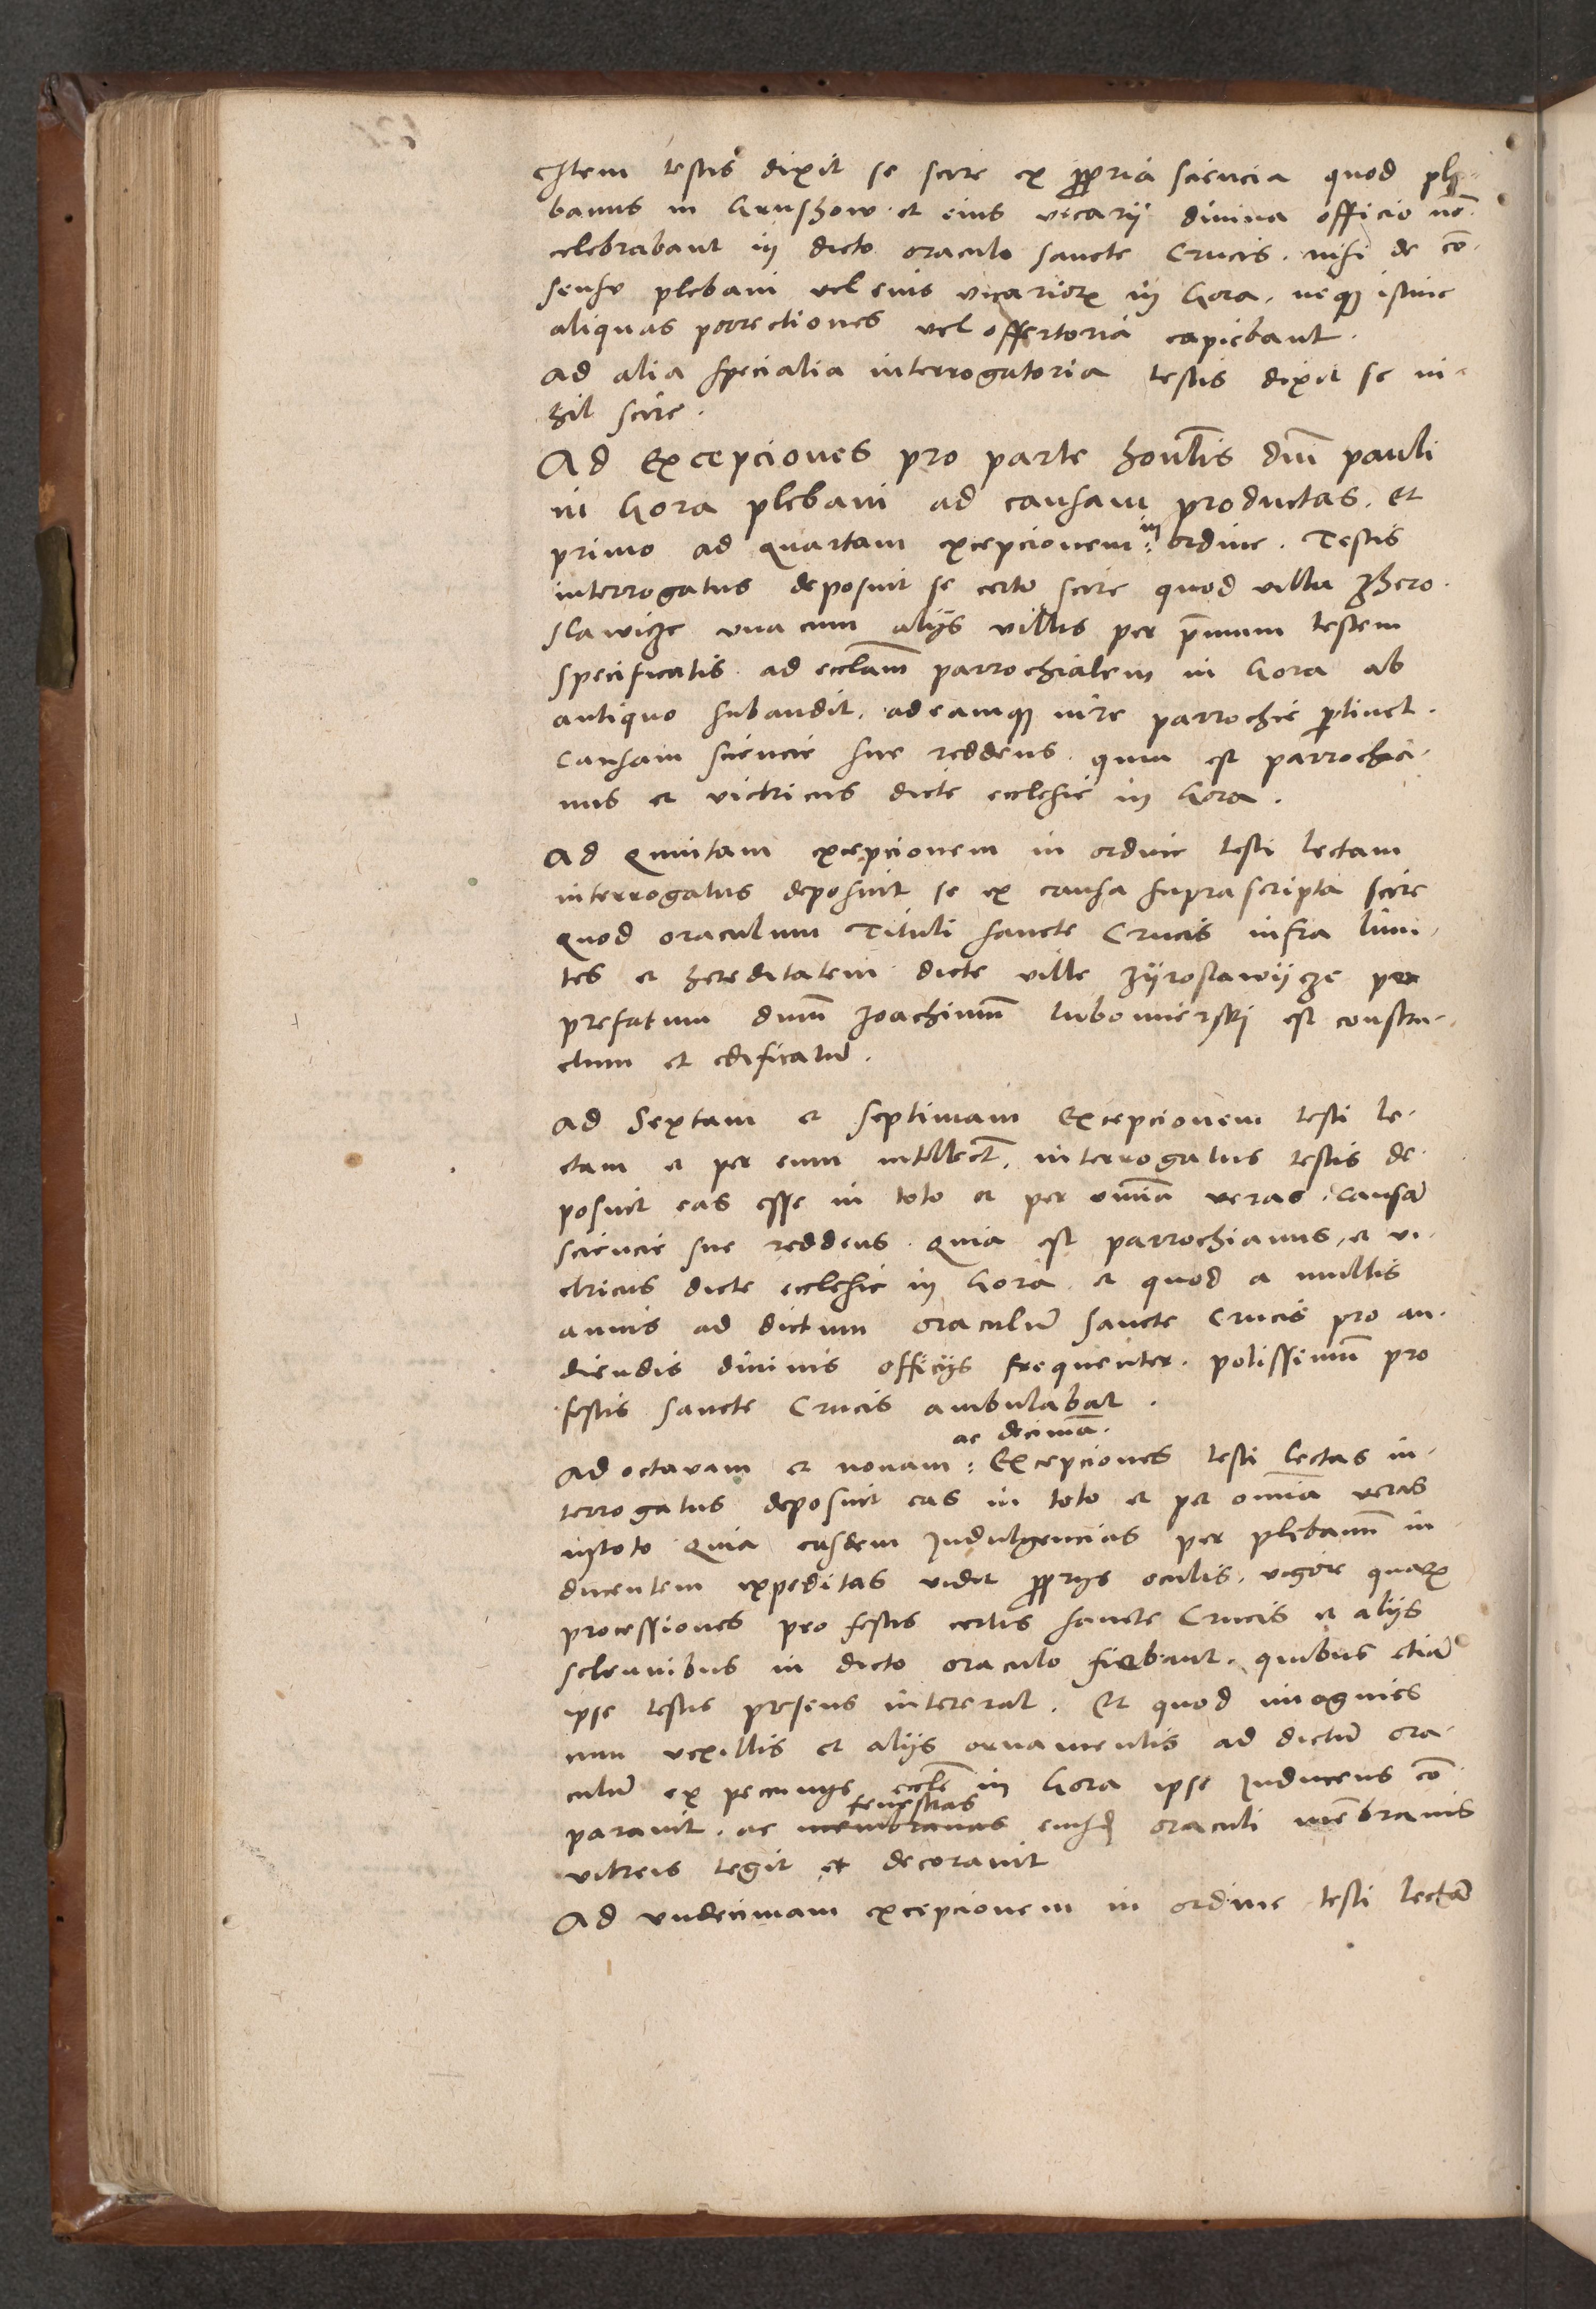 Item testis dixit se scire ex propria sciencia quod ple-
banus in Gruszow et eius vicarij divina officio nō
celebrabant in dicto oraculo sancte Crucis nisi de cō-
sensu plebani vel eius vicariorum in Gora. neque istinc
aliquas porrectiones vel offertoria capiebant.
Ad alia specialia interrogatoria testis dixit se ni-
hil scire.
Ad Excepciones pro parte honlis dni pauli
in Gora plebani ad causam productas. et
primo ad quartam excepcionem in ordine. Testis
interrogatus deposuit se certo scire quod villa Zhero-
slawicze vna cum alijs villis per primum testem
specificatis ad eccliam parrochialem in Gora ab
antiquo subaudit, ad eamque iure parrochie pertinet.
Causam sciencie sue reddens quia est parrochia-
nus et victricus dicte ecclesie in Gora.
Ad Quintam excepcionem in ordine testi lectam
interrogatus deposuit se ex causa suprascripta scire
quod oraculum Tituli sancte Crucis infra limi-
tes et hereditatem dicte ville Zyroslawycze per
prefatum dnum Joachimum lubomierski est constru-
ctum et edificatum.
Ad Sextam et septimam Excepcionem testi le-
ctam et per eum intellectam, interrogatus testis de-
posuit eas esse in toto et per omnia veras. Causam
sciencie sue reddens quia est parrochianus et vi-
ctricus dicte ecclesie in Gora et quod a multis
annis ad dictum oraculum sancte Crucis pro au-
diendis diuinis officijs frequenter potissimum pro
festis sancte Crucis ambulabat.
Ad octavam et nonam ac decimam Excepciones testi lectas in-
terrogatus deposuit eas in toto et per omnia veras
in toto quia easdem Indulgencias per plebanum in-
ducentem expeditas vidit proprijs oculis, vigore quarum
processiones pro festis certis sancte Crucis et alijs
solennibus in dicto oraculo fiebant. quibus etiam
ipse testis presens intererat. Et quod imagines
cum vexillis et alijs ornamentis ad dictum ora-
culum ex pecunijs eccle in Gora ipse Inducens cō-
paravit. ac membranas fenestras eiusdem oraculi membranis
vitreis tegit et decoravit
Ad vndecimam excepcionem in ordine testi lectam